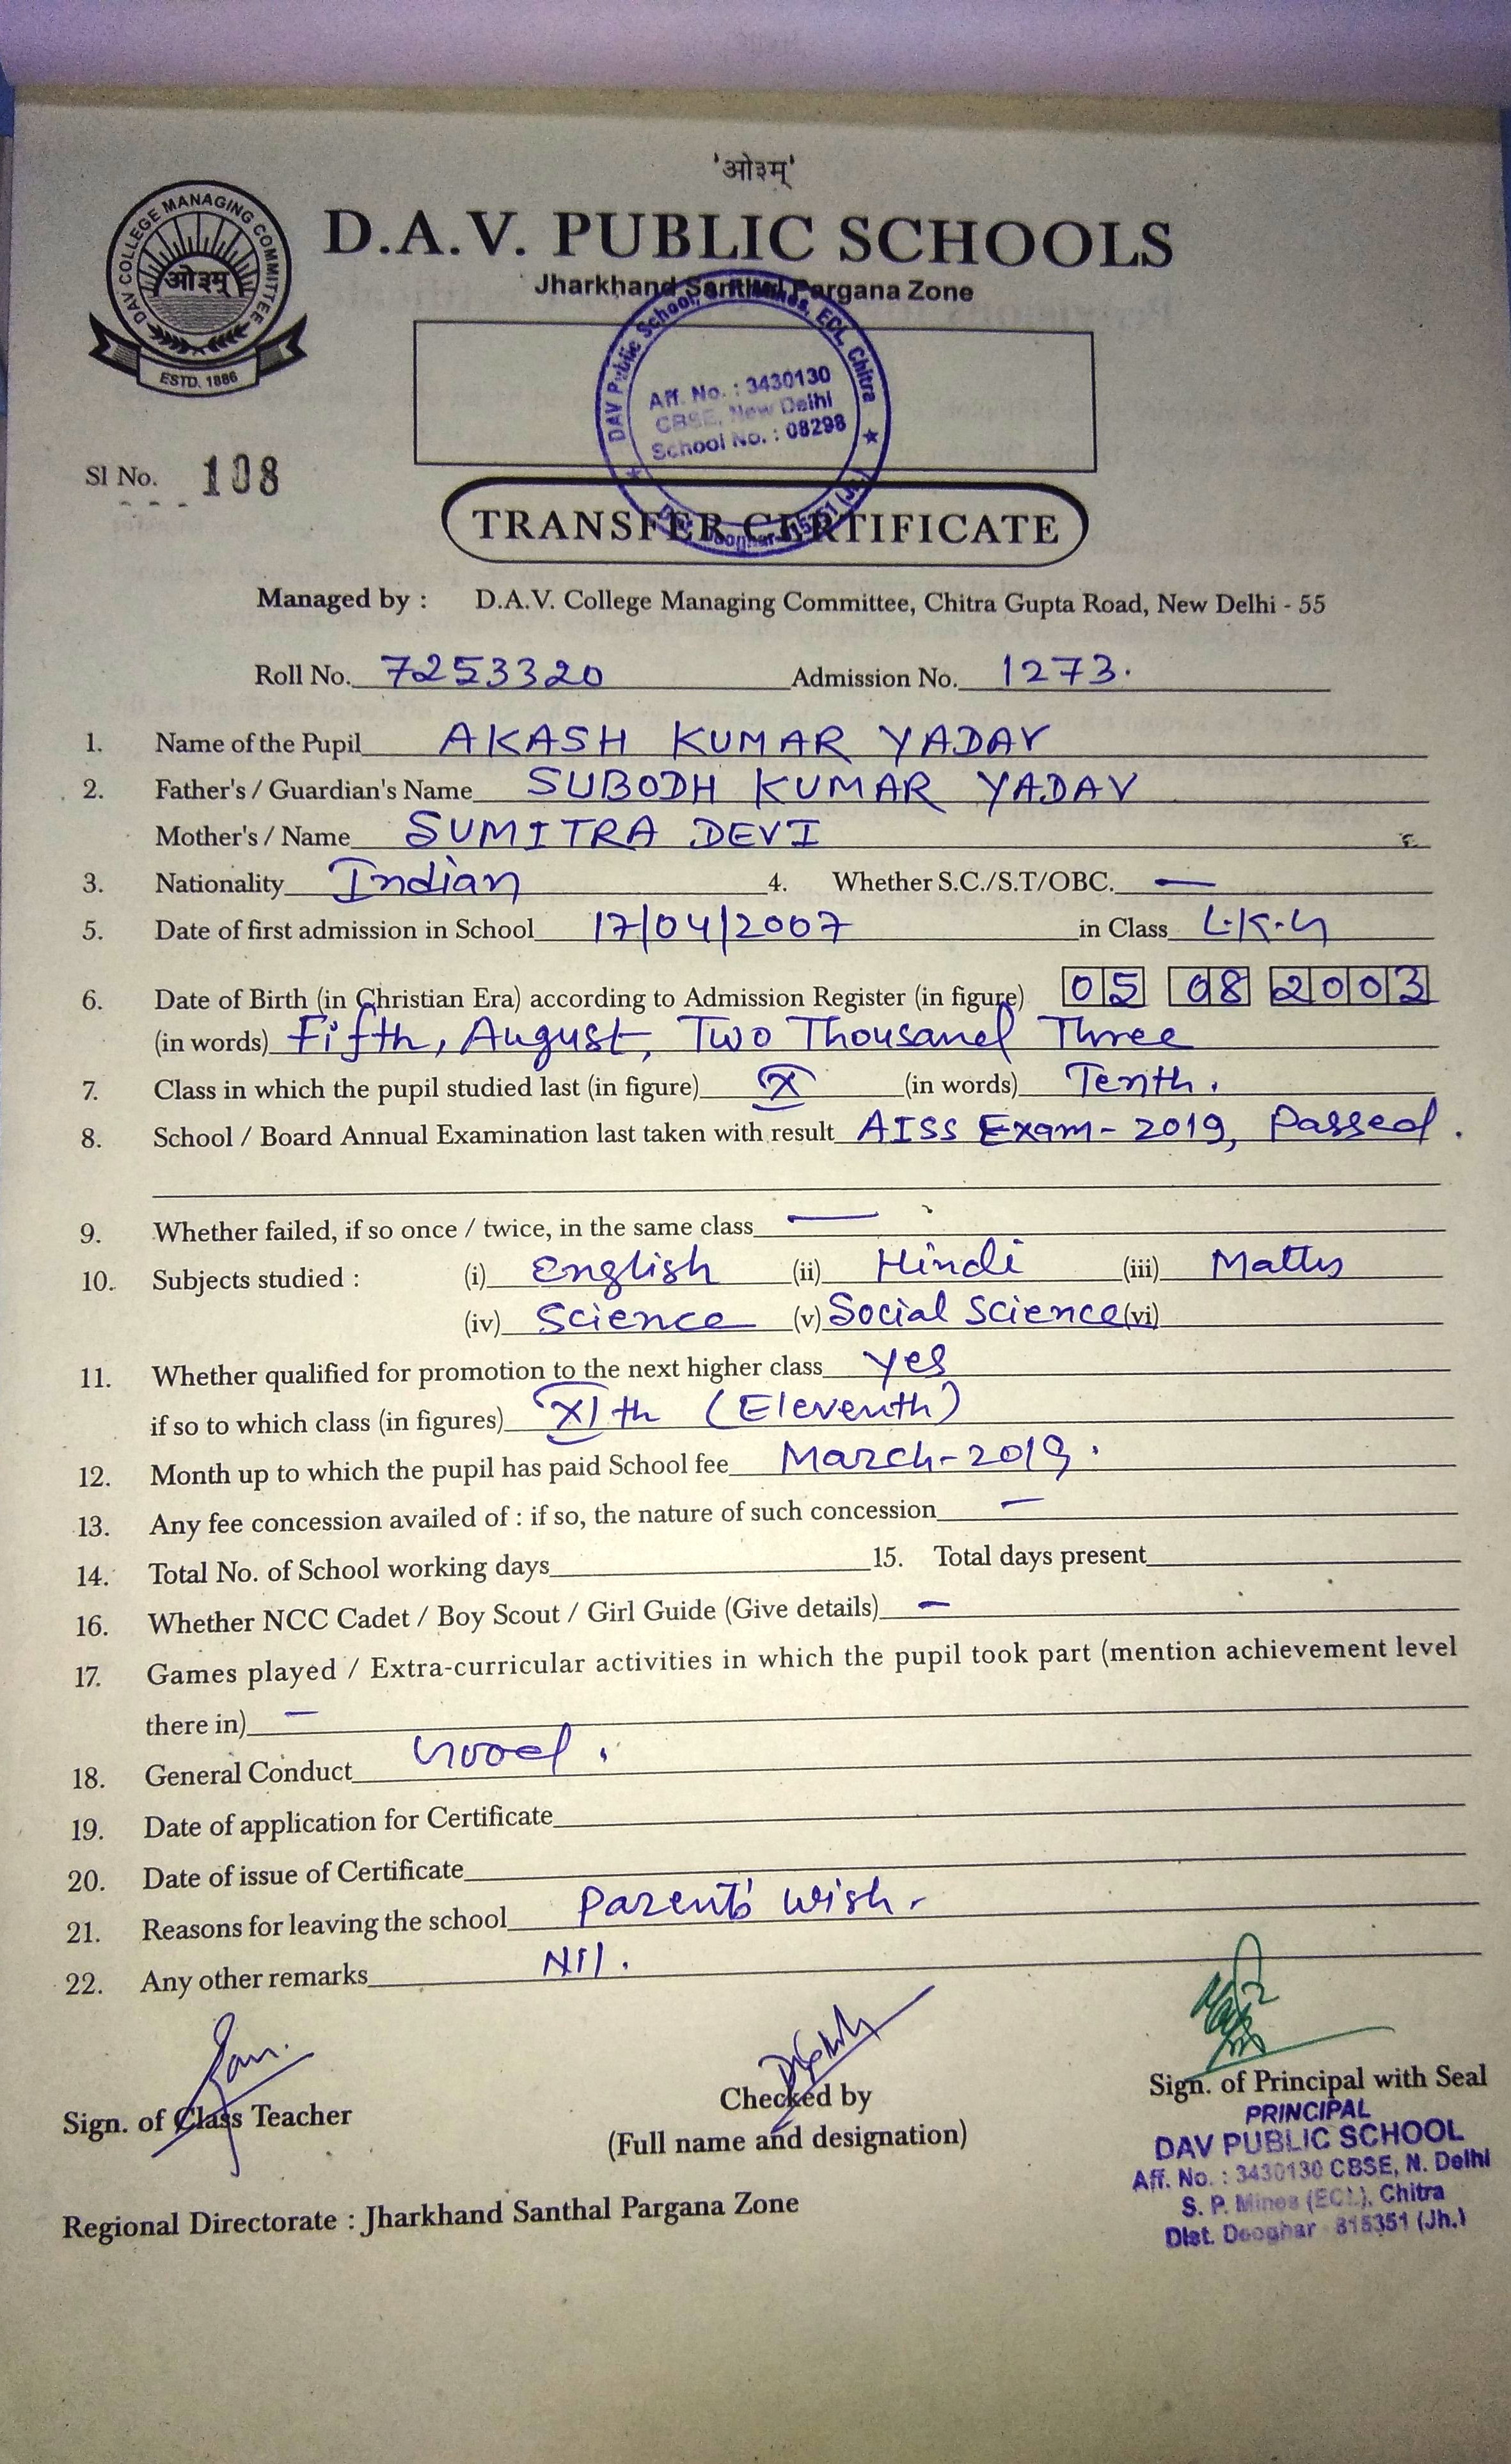 'ओ३म्'
DAV COLLEGE MANAGING COMMITTEE
ओ३म्
ESTD. 1886
D.A.V. PUBLIC SCHOOLS
Jharkhand Santhal Pargana Zone
DAV Public School, S. P. Mines, ECL, Chitra
Aff. No. : 3430130
CBSE, New Delhi
School No. : 08298
Sl No. 108
TRANSFER CERTIFICATE
Managed by : D.A.V. College Managing Committee, Chitra Gupta Road, New Delhi - 55
Roll No. 7253320 Admission No. 1273.
1. Name of the Pupil AKASH KUMAR YADAV
2. Father's / Guardian's Name SUBODH KUMAR YADAV
Mother's / Name SUMITRA DEVI
3. Nationality Indian 4. Whether S.C./S.T/OBC. —
5. Date of first admission in School 17/04/2007 in Class L.K.G
6. Date of Birth (in Christian Era) according to Admission Register (in figure) 05 08 2003
(in words) Fifth, August, Two Thousand Three
7. Class in which the pupil studied last (in figure) X (in words) Tenth.
8. School / Board Annual Examination last taken with result AISS Exam - 2019, Passed.
9. Whether failed, if so once / twice, in the same class —
10. Subjects studied : (i) English (ii) Hindi (iii) Maths
(iv) Science (v) Social Science (vi)
11. Whether qualified for promotion to the next higher class yes
if so to which class (in figures) XIth (Eleventh)
12. Month up to which the pupil has paid School fee March-2019.
13. Any fee concession availed of : if so, the nature of such concession —
14. Total No. of School working days 15. Total days present
16. Whether NCC Cadet / Boy Scout / Girl Guide (Give details) —
17. Games played / Extra-curricular activities in which the pupil took part (mention achievement level
there in) —
18. General Conduct Good.
19. Date of application for Certificate
20. Date of issue of Certificate
21. Reasons for leaving the school Parent's wish.
22. Any other remarks Nil.
Sign. of Class Teacher
Checked by
(Full name and designation)
Sign. of Principal with Seal
PRINCIPAL
DAV PUBLIC SCHOOL
Aff. No. : 3430130 CBSE, N. Delhi
S. P. Mines (ECL), Chitra
Dist. Deoghar 815351 (Jh.)
Regional Directorate : Jharkhand Santhal Pargana Zone